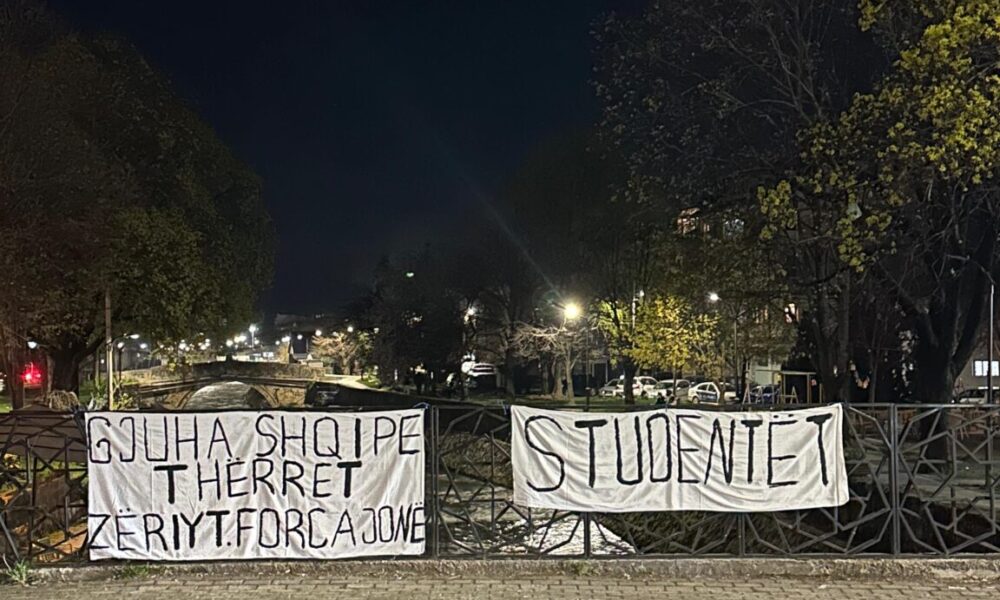 GJUHA SHQIPE
THËRRET
ZËRI YT. FORCA JONË
STUDENTËT